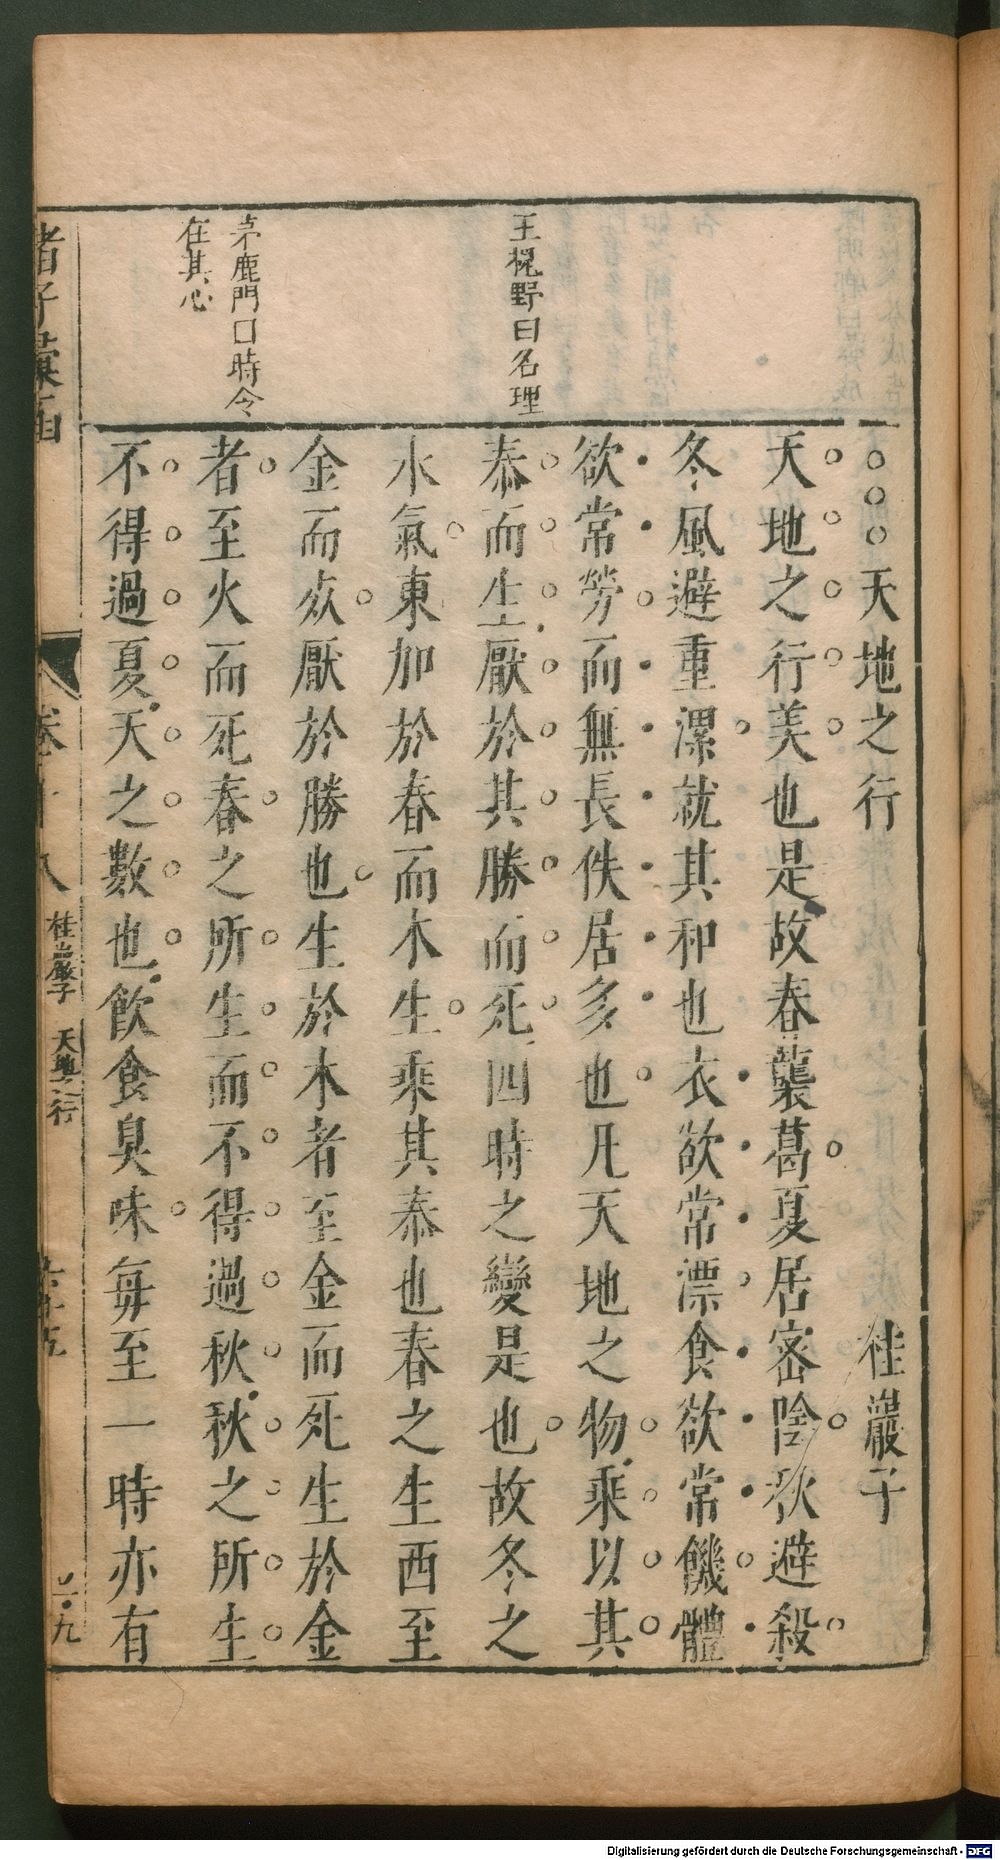 天地之行 桂巖子
天地之行美也是故春襲葛夏居密陰秋避殺
冬風避重漯就其和也衣欲常漂食欲常饑體
欲常勞而無長佚居多也凡天地之物乘以其
泰而生厭於其勝而死四時之變是也故冬之
水氣東加於春而木生乘其泰也春之生西至
金而死厭於勝也生於木者至金而死生於金
者至火而死春之所生而不得過秋秋之所生
不得過夏天之數也飲食臭味每至一時亦有
王槐野曰名理
茅鹿門曰時令
在其心
諸子彙函
卷十八
桂巖子 天地之行
九
Digitalisierung gefördert durch die Deutsche Forschungsgemeinschaft - DFG